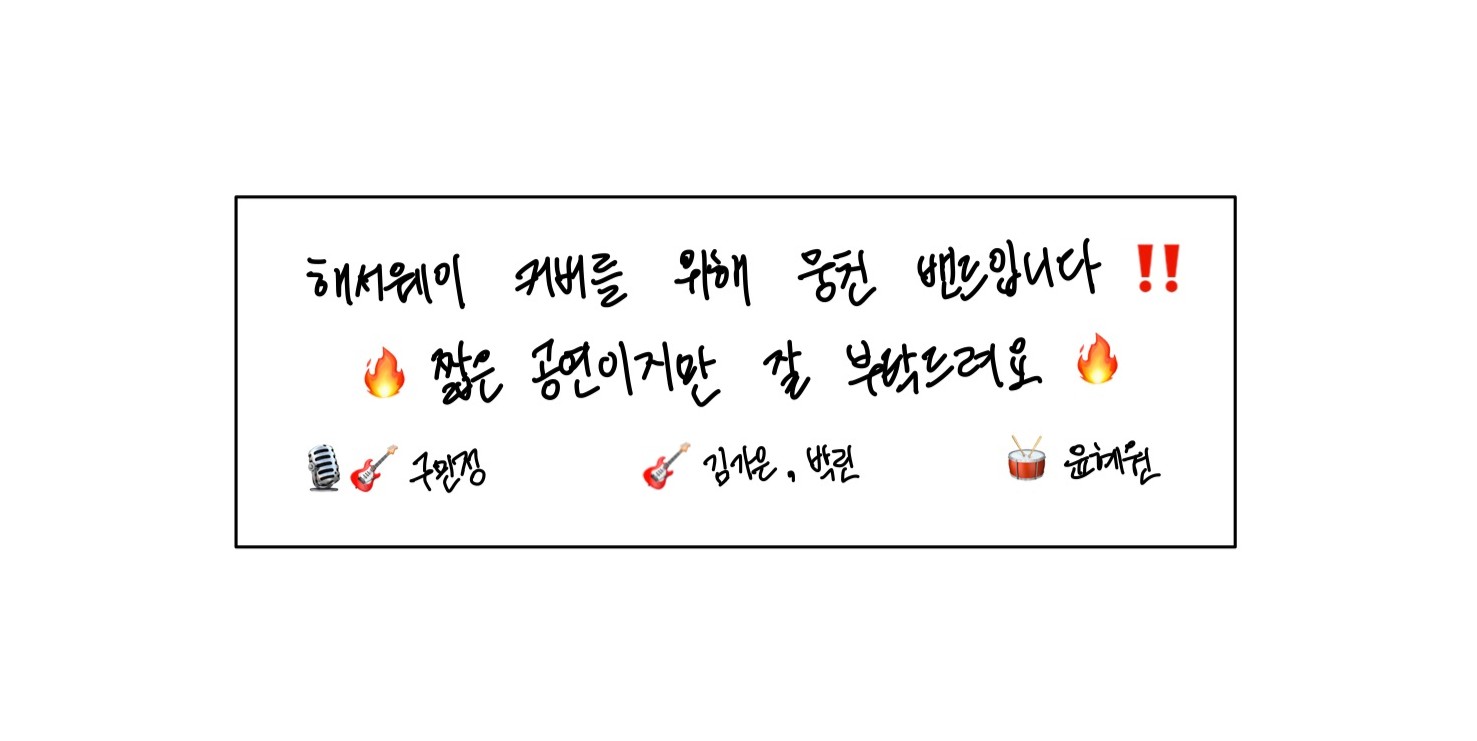 해서웨이 커버를 위해 뭉친 밴드입니다 ‼️
🔥 짧은 공연이지만 잘 부탁드려요 🔥
🎙️🎸 구민정 🎸 김가은, 박린 🥁 윤혜원